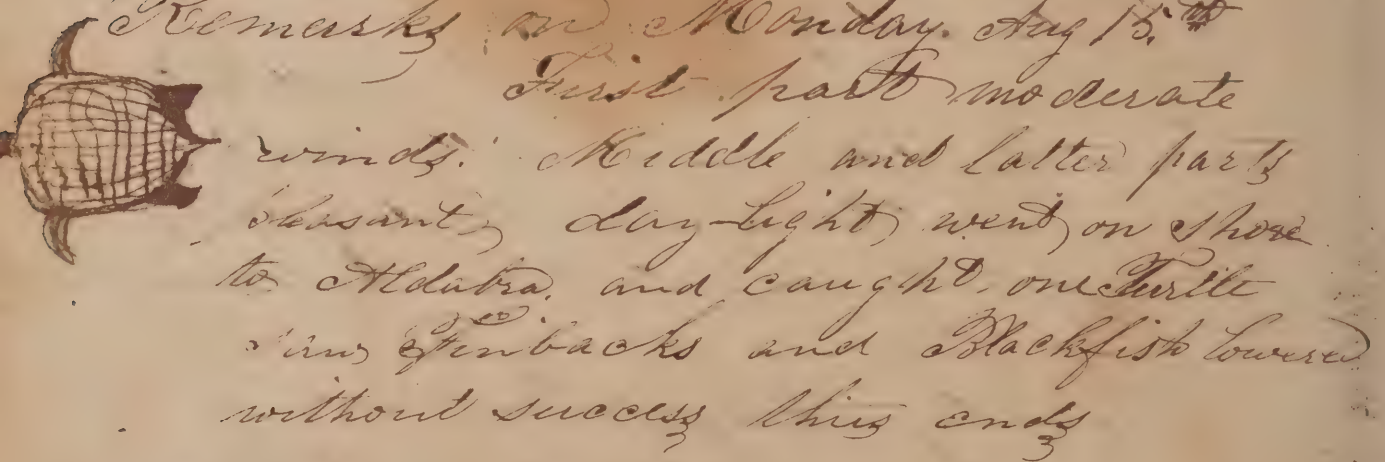 Remarks on Monday. Aug 15.th
First part moderate
winds. Middle and latter parts
pleasant, day-light went on shore
to Aldabra. and caught one Turtle
saw Finbacks and Blackfish lowered
without success thus ends